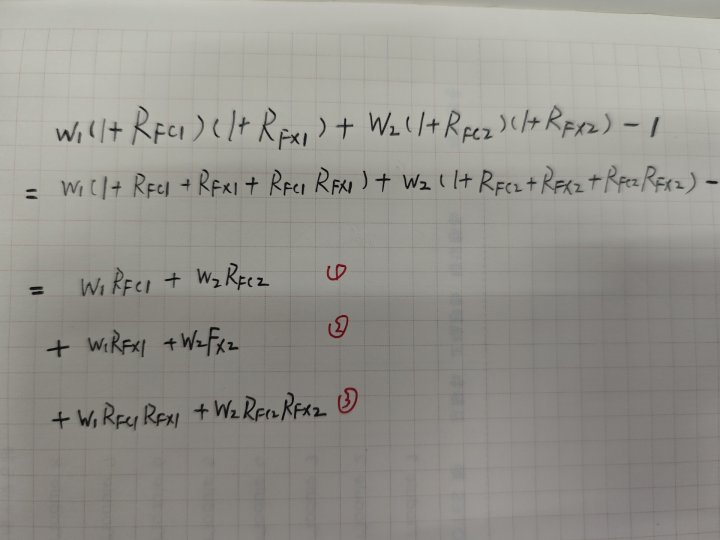 W₁(1+R_FC1)(1+R_FX1)+W₂(1+R_FC2)(1+R_FX2)-1
=W₁(1+R_FC1+R_FX1+R_FC1R_FX1)+W₂(1+R_FC2+R_FX2+R_FC2R_FX2)-
=W₁R_FC1+W₂R_FC2 ①
+W₁R_FX1+W₂F_X2 ②
+W₁R_FC1R_FX1+W₂R_FC2R_FX2 ③